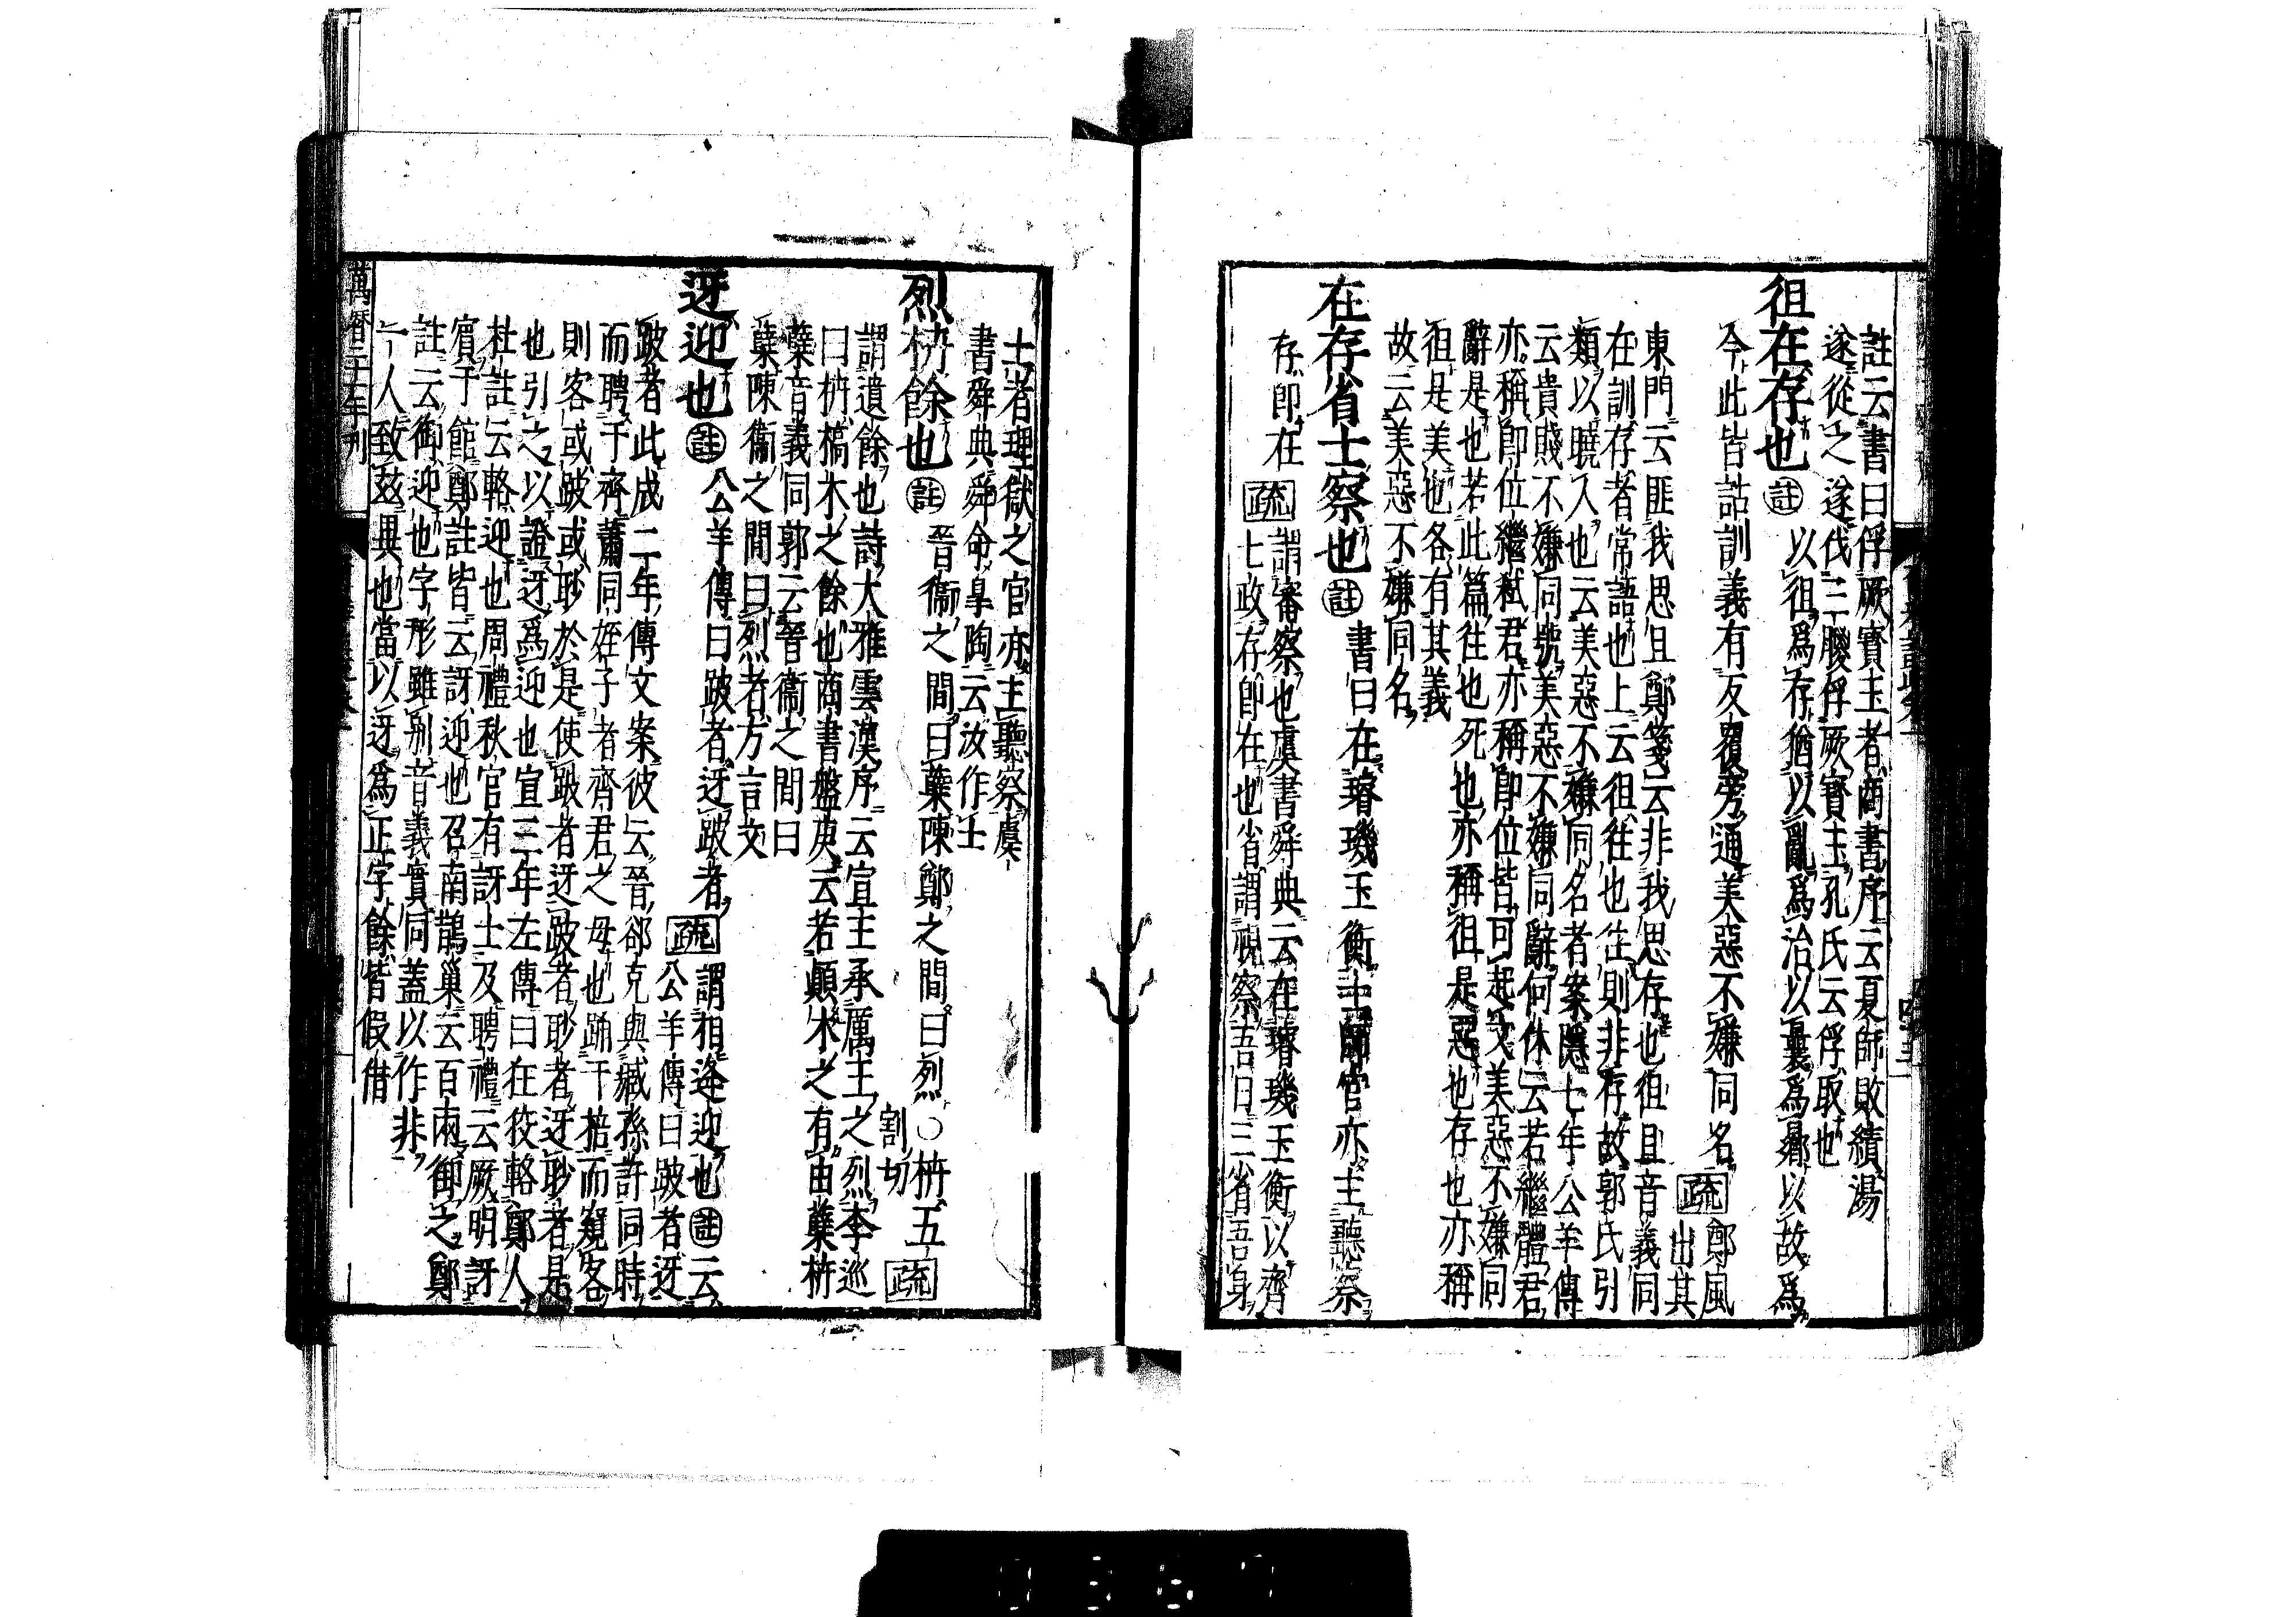 註云書曰俘厥寶玉者商書序云夏師敗績湯
遂從之遂伐三朡俘厥寶玉孔氏云俘取也
徂在存也註以徂爲存猶以亂爲治以曩爲曏以故爲
今此皆詁訓義有反覆旁通美惡不嫌同名疏鄭風
出其
東門云匪我思且鄭箋云非我思存也徂且音義同
在訓存者常語也上云徂往也往則非存故郭氏引
類以曉人也云美惡不嫌同名者案隱七年公羊傳
云貴賤不嫌同號美惡不嫌同辭何休云若繼體君
亦稱卽位繼弒君亦稱卽位皆可起文美惡不嫌同
辭是也若此篇往也死也亦稱徂是惡也存也亦稱
徂是美也各有其義
故云美惡不嫌同名
在存省士察也註書曰在璿璣玉衡士師官亦主聽察
存卽在疏謂審察也虞書舜典云在璿璣玉衡以齊
七政存卽在也省謂視察吾日三省吾身
士者理獄之官亦主聽察虞
書舜典舜命臯陶云汝作士
烈枿餘也註晉衞之間曰蘖陳鄭之間曰烈○枿五
割切疏
謂遺餘也詩大雅雲漢序云宣王承厲王之烈李巡
曰枿槁木之餘也商書盤庚云若顚木之有由蘖枿
蘖音義同郭云晉衞之間曰
蘖陳鄭之間曰烈者方言文
迓迎也註公羊傳曰跛者迓跛者疏謂相逢迎也註云
公羊傳曰跛者迓
跛者此成二年傳文案彼云晉郤克與臧孫許同時
而聘于齊蕭同姪子者齊君之母也踊于棓而窺客
則客或跛或眇於是使跛者迓跛者眇者迓眇者是
也引之以證迓爲迎也宣三年左傳曰狂狡輅鄭人
杜註云輅迎也周禮秋官有訝士及聘禮云厥明訝
賓于館鄭註皆云訝迎也召南鵲巢云百兩御之鄭
註云御迎也字形雖別音義實同蓋以作非
一人致玆異也當以迓爲正字餘皆假借
萬曆二十一年刊